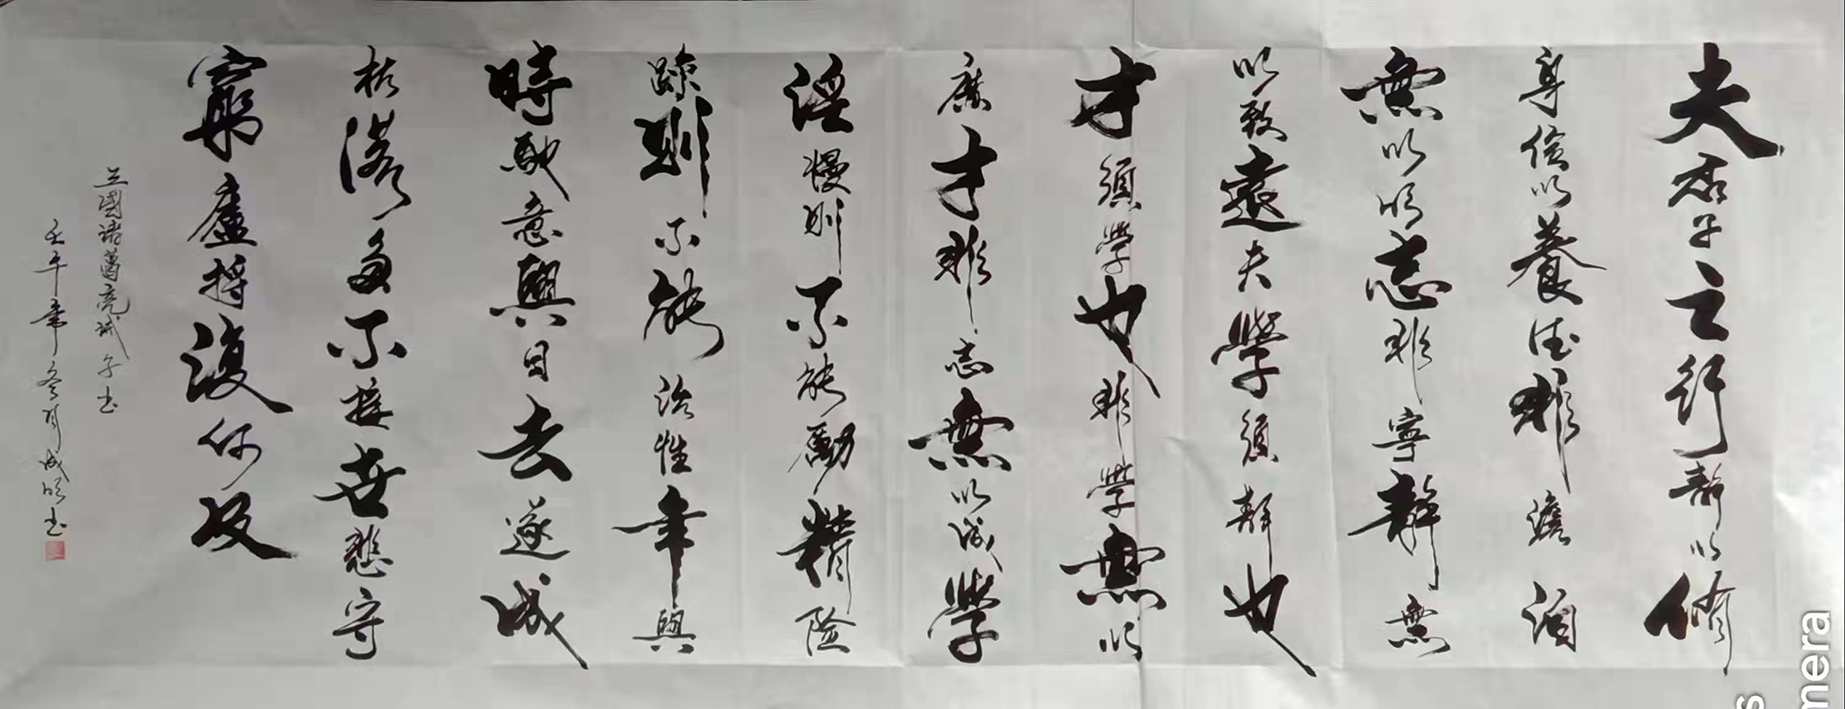 夫君子之行静以修
身俭以養德非澹泊
無以明志非寧静無
以致遠夫學須静也
才須學也非學無以
廣才非志無以成學
淫慢則不能勵精险
躁則不能治性年與
時馳意與日去遂成
枯落多不接世悲守
窮廬将復何及
三國諸葛亮诫子书
年冬月成明书
mera